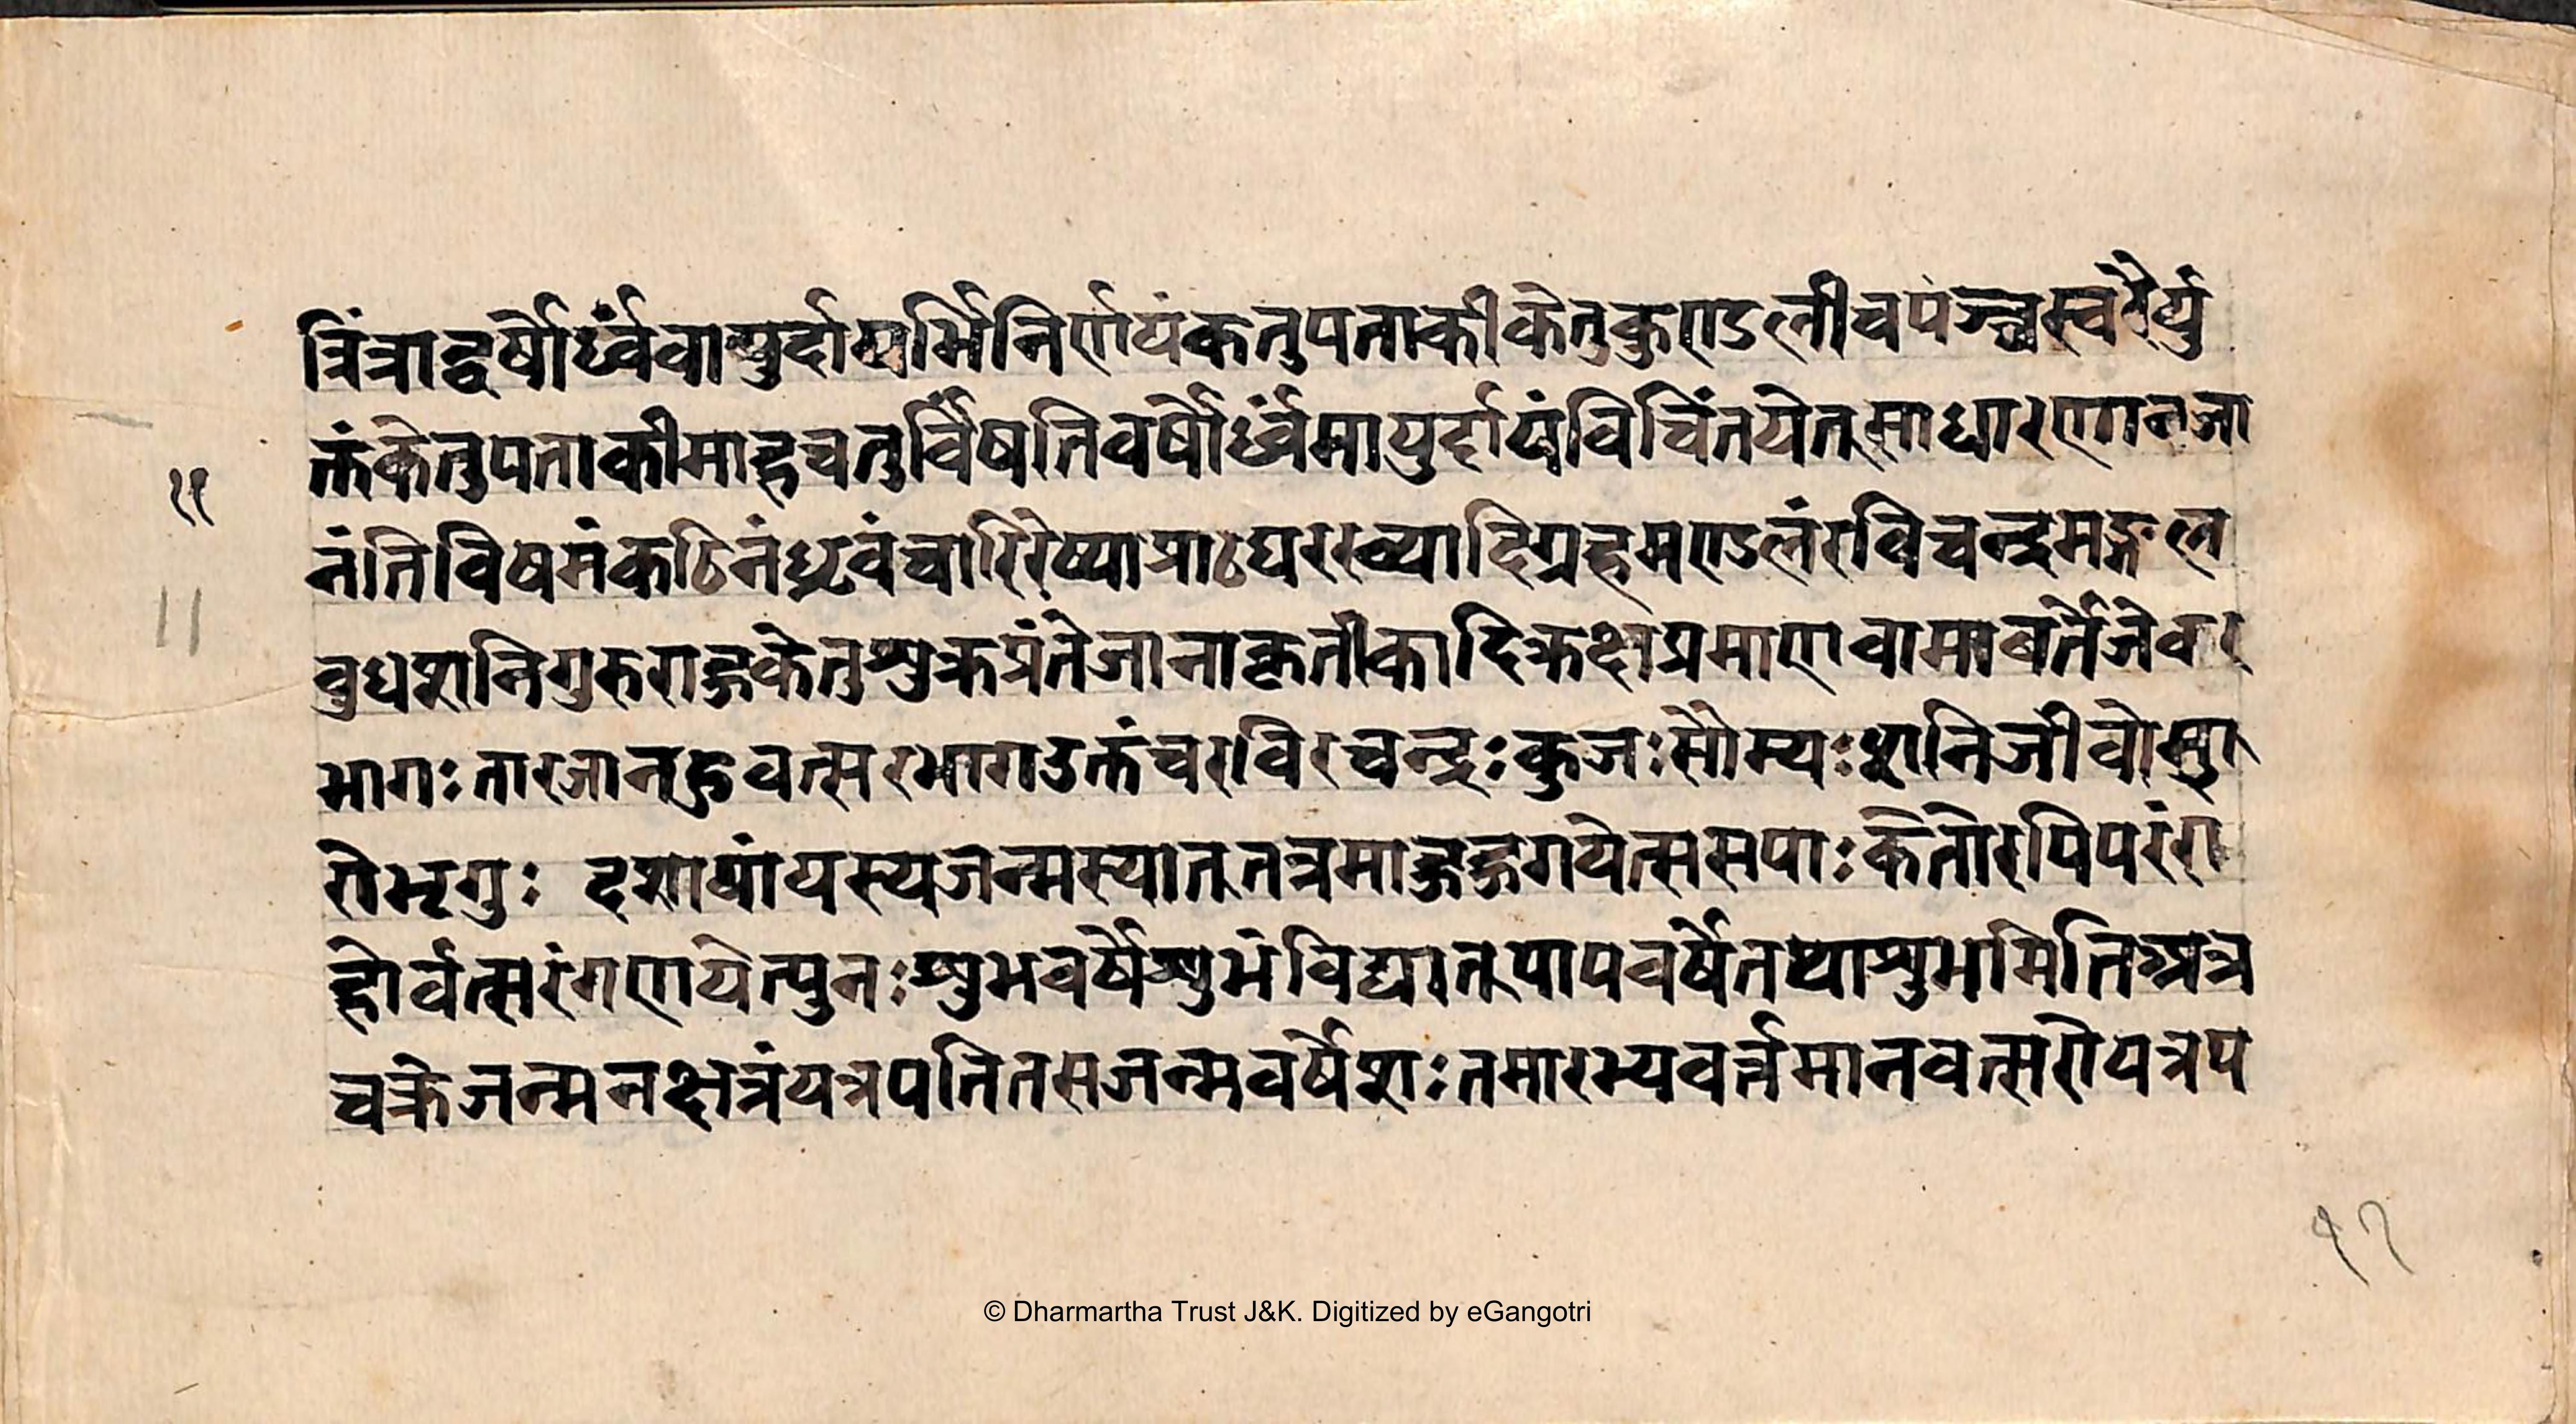 त्रिंत्राद्वर्षोर्ध्वंवायुर्दायमर्भिनिर्णयंकतुपताकीकेतुकुण्डलीचपंञ्चस्वरैर्यु
क्तंकेतुपताकीमाहचतुर्विंषतिवर्षोर्ध्वंमायुर्दायंविचिंतयेत्साधारणगनजा
नंतिविषमंकठिनंध्रुवं
ग्रहमण्डलंरविचन्द्रमङ्गल
वुधशनिगुरुराहुकेतुशुक्रप्रंतेजानाकृतीकादिक्रक्षप्रमाणवामाबर्तेजेवर
भागःतारजानहुवत्सरभागउक्तंचरविरचन्द्रःकुजःसौम्यःशनिजीवोसुा
रोभृगुः दशायांयस्यजन्मस्यात्तत्रमाहुहुगयेत्ससपाःकेतोरपिपरंरा
होर्वत्सरंगणयेत्पुनःशुभवर्षेशुभंविद्यात्पापवर्षेतथाशुभमितिअत्र
चक्रेजन्मनक्षत्रंयत्रपतितसजन्मवर्षेशःतमारभ्यवर्त्तमानवत्सरोयत्रप
११
11
१२
© Dharmartha Trust J&K. Digitized by eGangotri